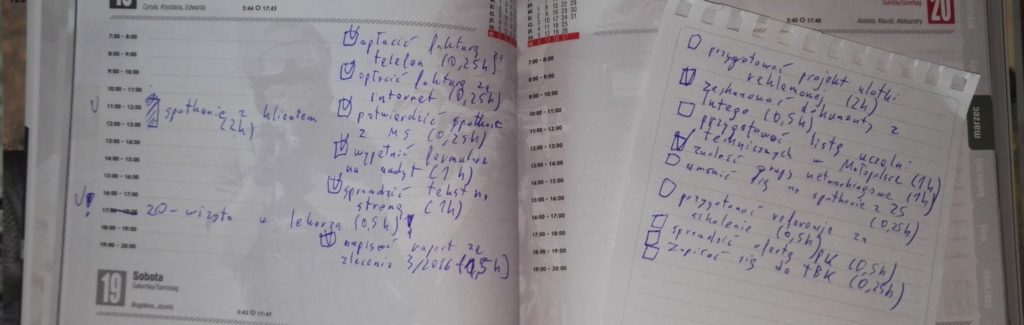 Cyryla, Krystiana, Edwarda
5:44 17:45
7:00 - 8:00
8:00 - 9:00
9:00 - 10:00
10:00 - 11:00
11:00 - 12:00
12:00 - 13:00
13:00 - 14:00
14:00 - 15:00
15:00 - 16:00
16:00 - 17:00
17:00 - 18:00
18:00 - 19:00
19:00 - 20:00
spotkanie z klientem
(2h)
20 - wizyta u lekarza (0,5h)!
opłacić fakturę za
telefon (0,25h)
opłacić fakturę za
internet (0,25h)
potwierdzić spotkanie
z MS (0,25h)
wypełnić formularz
na audyt (1h)
sprawdzić tekst na
stronę (1h)
napisać raport ze
zlecenia 3/2016
19 Sobota
Saturday/Samstag
Bogdana, Józefa
5:43 17:47
Sunday/Sonntag
20
5:40 17:48
Anatola, Klaudii, Aleksandry
7:00 - 8:00
8:00 - 9:00
9:00 - 10:00
10:00 - 11:00
11:00 - 12:00
12:00 - 13:00
13:00 - 14:00
14:00 - 15:00
15:00 - 16:00
16:00 - 17:00
17:00 - 18:00
18:00 - 19:00
19:00 - 20:00
przygotować projekt ulotki
reklamowej (2h)
dokumenty z
lutego (0,5h)
przygotować listę uczelni
technicznych w Małopolsce (1h)
znaleźć grupy networkingowe (1h)
umówić się na spotkanie z ZS
(0,25h)
przygotować referencje za
szkolenie (0,5h)
sprawdzić oferty PK (0,5h)
zapisać się do TBK (0,25h)
marzec